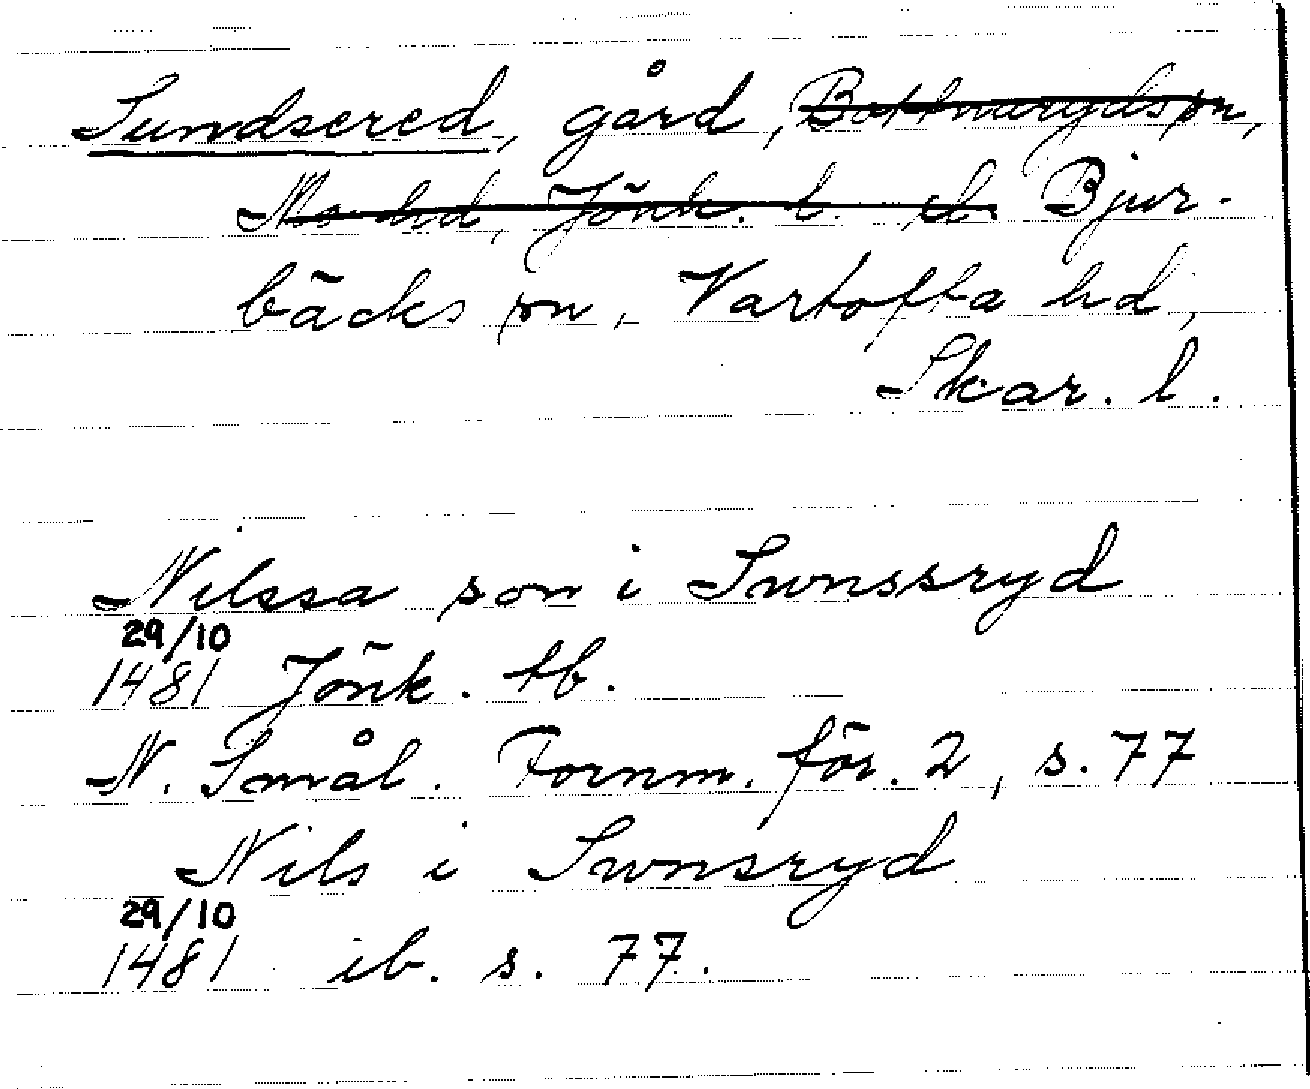 Sundsered, gård, Bottnaryds sn,
Mo hd, Jönk. l. el. Bjur-
bäcks sn, Vartofta hd,
Skar. l.
Nilssa son i Swnssryd
29/10
1481 Jönk. tb.
N. Smål. Fornm. för. 2, s. 77
Nils i Swnsryd
29/10
1481 ib. s. 77.